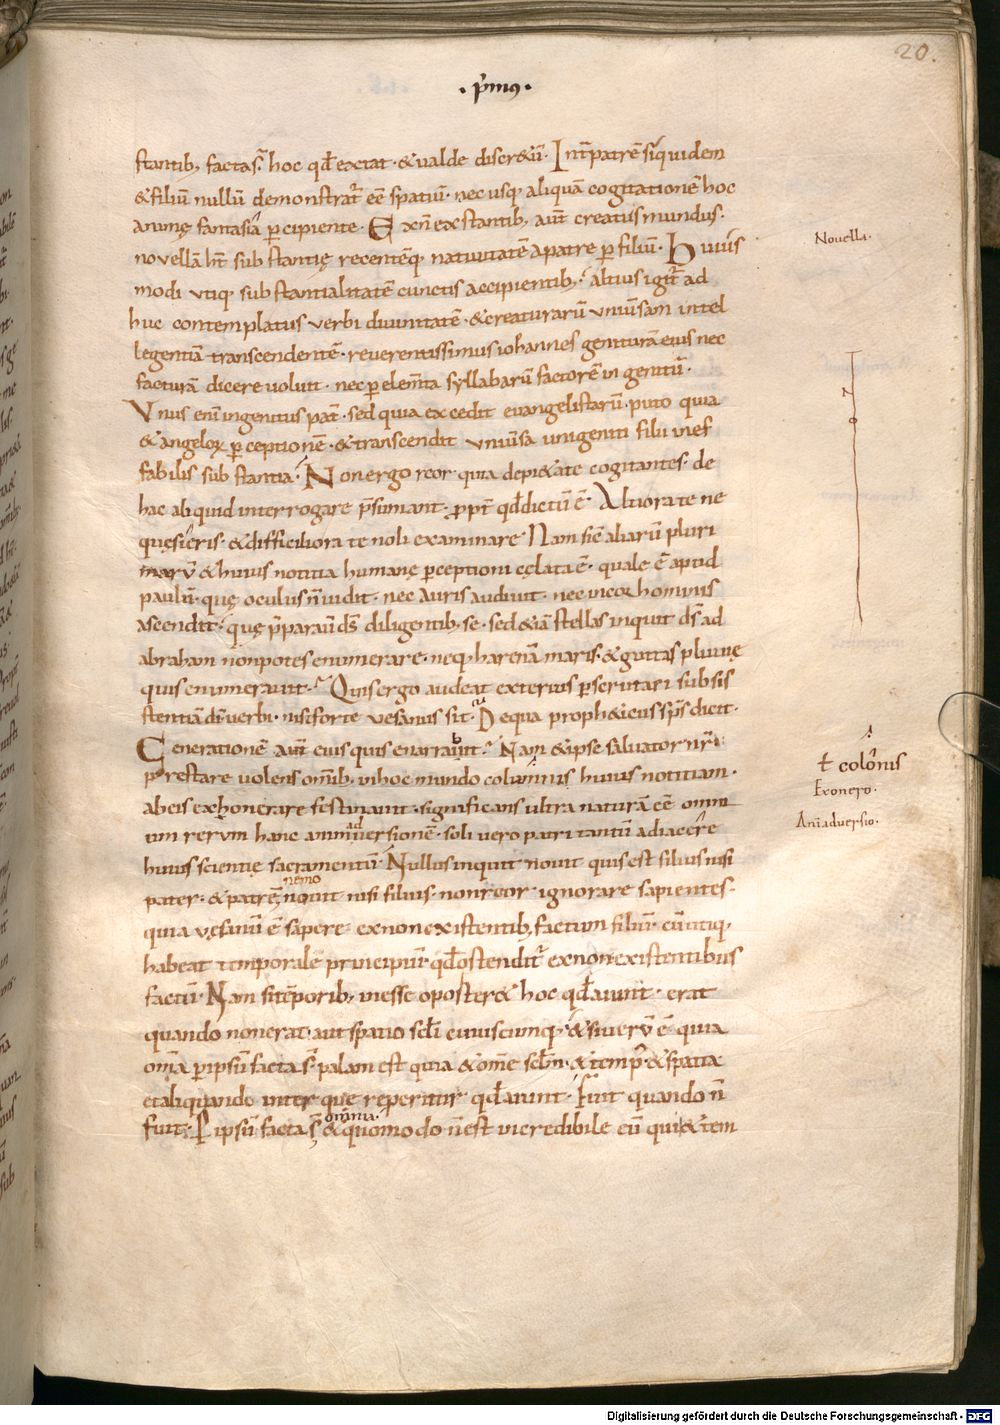 20.
· p̄mꝯ ·
stantib; factas̄ hoc qđ extat · & ualde discr&ū · Int̄ patrē siquidem
& filiū nullū demonstrat̄ eē spatiū · nec usq; aliquā cogitationē hoc
animę fantasia p̱cipiente · Exn̄ exstantib; aut̄ creatus mundus ·
novellā ht̄ substantię recentēq; natiuitatē a patre p̱ filiū · Huius
modi utiq; substantialitatē cunctis accipientib; altius igit̄ ad
huc contemplatus verbi diuinitatē · & creaturarū uniu̅sam intel
legentiā transcendentē · reuerentissimus iohannes genturā eius nec
facturā dicere uoluit · nec p̱ elem̅ta syllabarū factorē ingenitū ·
Unus eni̅ ingenitus pat̄ · sed quia excedit evangelistarū · puto quia
& angeloꝝ p̱ceptionē · & transcendit uniu̅sa unigeniti filii inef
fabilis substantia · Non ergo reor quia de pi&ate cogitantes · de
hac aliquid interrogare p̄sumant · ꝓpt̄ qđ dictū ē · Altiora te ne
quęsieris · & difficiliora te noli examinare Nam sic̄ aliarū pluri
marū & huius notitia humanę p̱ceptioni cęlata ē · quale ē apud
paulū · quę oculus n̄ uidit · nec auris audiuit · nec in cor hominis
ascendit · quę p̄parauit ds̄ diligentib; se · sed & iā stellas inquit ds̄ ad
abraham non potes enumerare · neq; harenā maris · & guttas pluuię
quis enumerauit · Quis ergo audeat exterius p̱scrutari subsis
stentiā dī verbi · nisi forte vesanus sit · De qua proph&icus sp̄s dicit ·
Generationē aut̄ eius quis enarrabit · Nam & ipse saluator nr̄
prestare uolens om̄ib; in hoc mundo columnis huius notitiam ·
ab eis exhonerare festinauit · significans ultra naturā eē omni
um rerum hanc animaduersionē · soli vero patri tantū adiacere
huius scientię sacramentū · Nullus inquit nouit quis est filius nisi
pater · & patrē nemo nouit nisi filius · non reor ignorare sapientes ·
quia vęsanū ē sapere · ex non existentib; factum filiū · cū utiq;
habeat temporale principiū · qđ ostendit̄ ex non existentibus
factū · Nam si tēporib; inesse oposter& hoc qđ aiunt · erat
quando non erat · aut spatio scl̄i cuiuscumq; & si uerū ē quia
om̄ia p̱ ipsū facta s̄ · palam est quia & om̄e scl̄m · & temp̱ · & spatia
et aliquando inter quę reperitur qđ aiunt · Fuit quando n̄
fuit · P̱ ipsū facta s̄ omnia · & quomodo n̄ est incredibile eū qui & tem
Novella.
N
o
ł colonis
Exonero ·
Animaduersio.
Digitalisierung gefördert durch die Deutsche Forschungsgemeinschaft - DFG